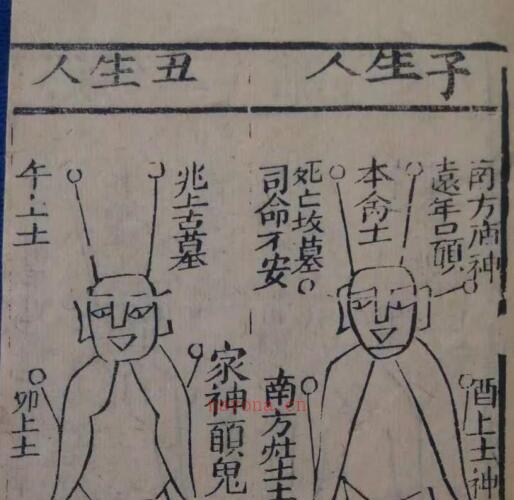 子生人
南方神
遠年口願
本命土
死亡墓
司命不安
酉上土神
南方灶土
丑生人
兆上古墓
午上土
家神願鬼
卯上土
nayona.cn